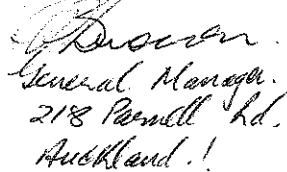 General Manager.
218 Parnell Rd.
Auckland.!